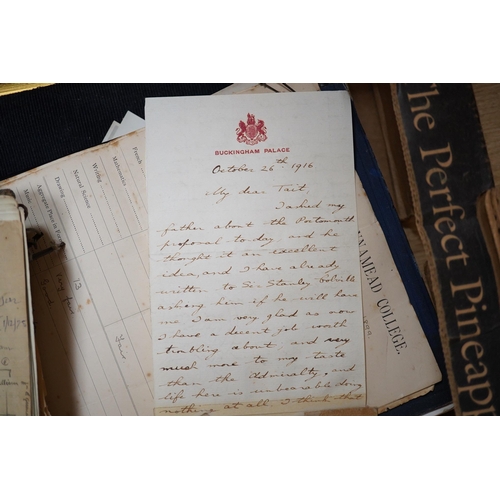 BUCKINGHAM PALACE
October 26th 1916
My dear Tait,
I asked my
father about the Portsmouth
proposal to-day, and he
thought it an excellent
idea, and I have already
written to Sir Stanley Colville
asking him if he will have
me. I am very glad as now
I have a decent job worth
troubling about, and very
much more to my taste
than the Admiralty, and
life here is unbearable doing
nothing at all. I think that
French
Mathematics
Writing
Natural Science
Drawing
13
NAMEAD COLLEGE.
The Perfect Pineapp